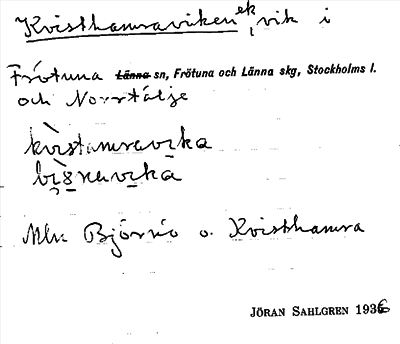 Kvisthamraviken ek, vik i
Frötuna Länna sn, Frötuna och Länna skg, Stockholms l.
och Norrtälje
kvistamravika
Mln Björnö o. Kvisthamra
JÖRAN SAHLGREN 1936